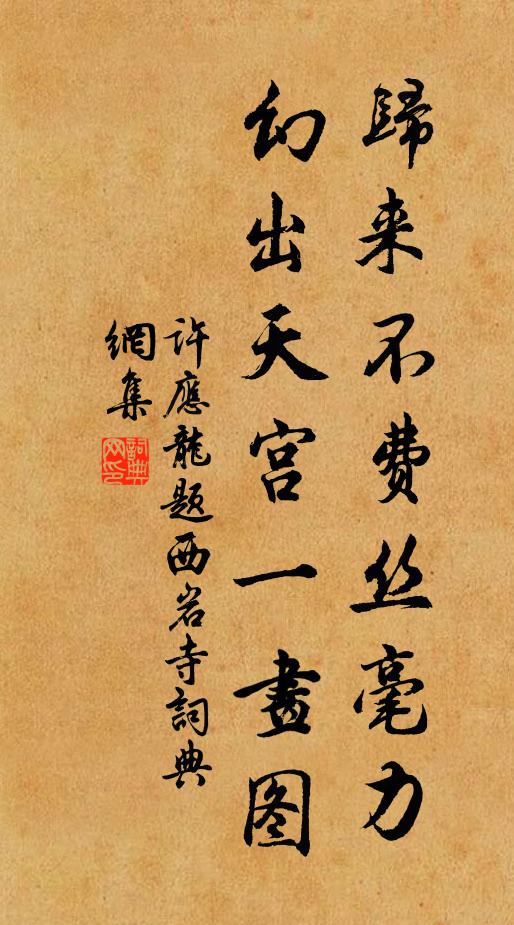 歸来不费丝毫力
幻出天宫一畫图
許應龍题西岩寺詞典
網集
詞典
网印